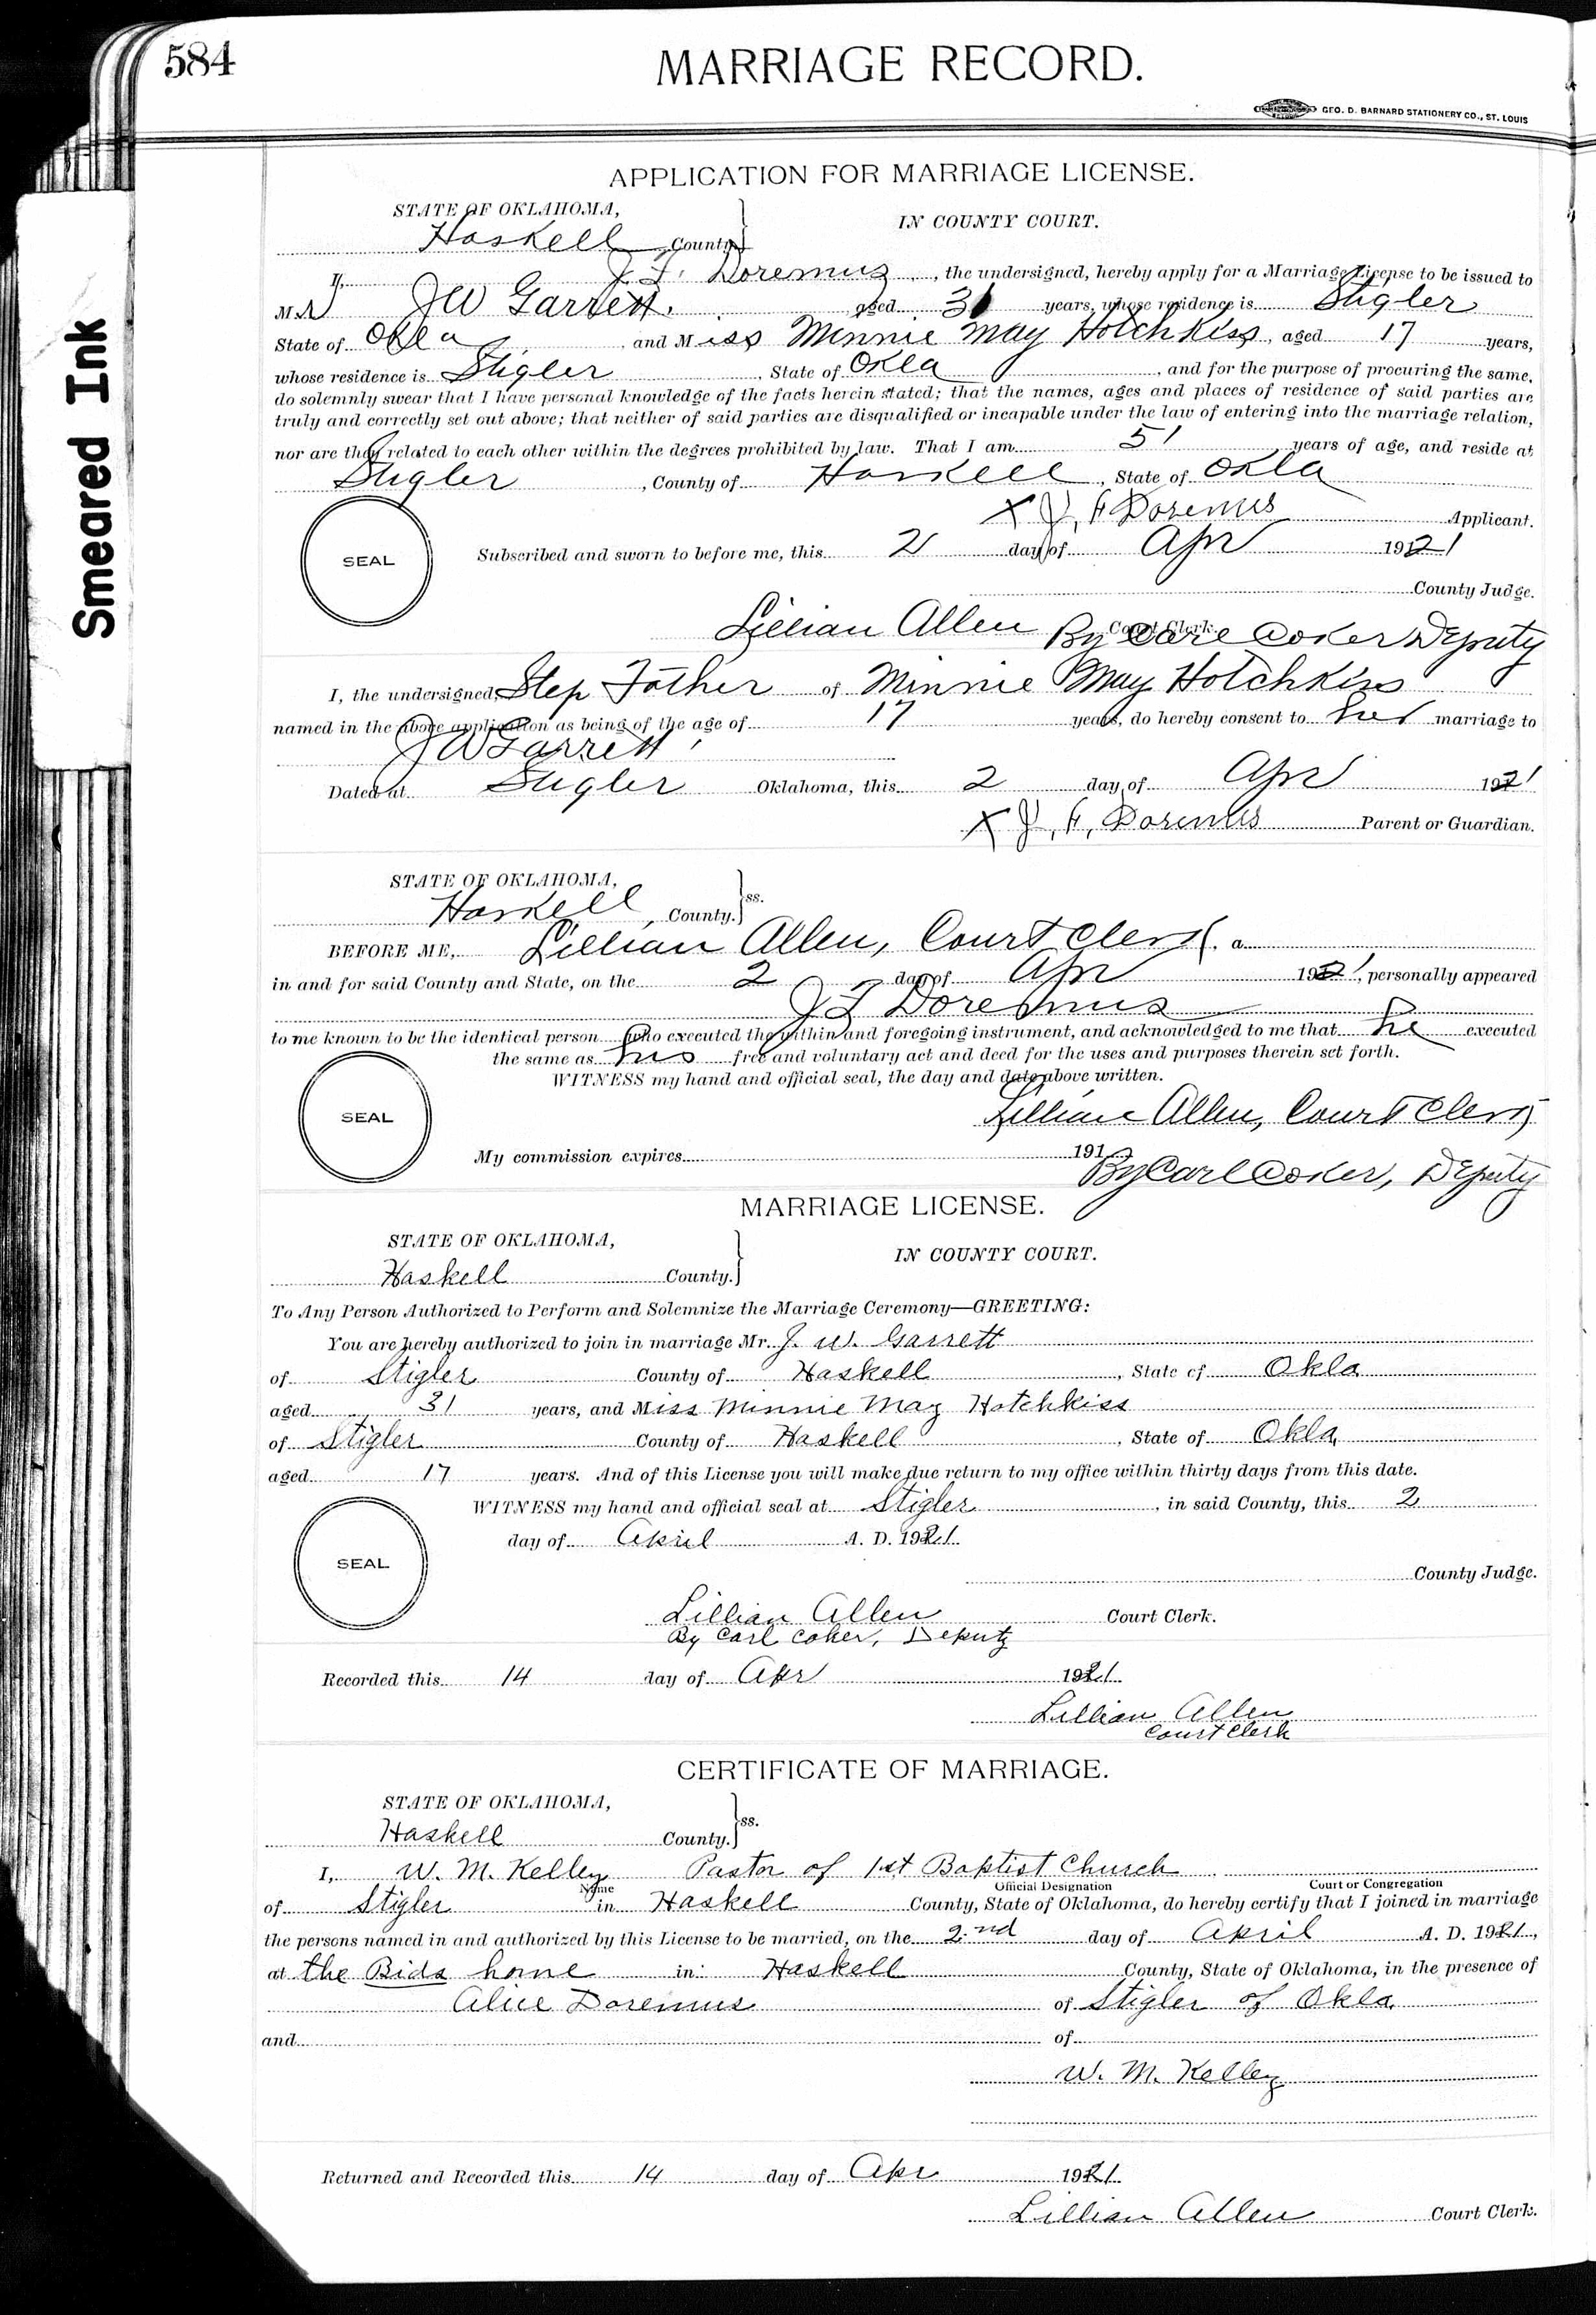 584
MARRIAGE RECORD.
GEO. D. BARNARD STATIONERY CO., ST. LOUIS
Smeared Ink
APPLICATION FOR MARRIAGE LICENSE.
STATE OF OKLAHOMA,
Haskell County
IN COUNTY COURT.
I, J. F. Doremus, the undersigned, hereby apply for a Marriage License to be issued to
Mr J W Garrett, aged 31 years, whose residence is Stigler
State of Okla, and Miss Minnie May Hotchkiss, aged 17 years,
whose residence is Stigler, State of Okla, and for the purpose of procuring the same,
do solemnly swear that I have personal knowledge of the facts herein stated; that the names, ages and places of residence of said parties are
truly and correctly set out above; that neither of said parties are disqualified or incapable under the law of entering into the marriage relation,
nor are they related to each other within the degrees prohibited by law. That I am 51 years of age, and reside at
Stigler, County of Haskell, State of Okla
X J. F Doremus Applicant.
SEAL
Subscribed and sworn to before me, this 2 day of Apr 1921
County Judge.
Lillian Allen Court Clerk. By Carl Coker Deputy
I, the undersigned, Step Father of Minnie May Hotchkiss
named in the above application as being of the age of 17 years, do hereby consent to her marriage to
J W Garrett
Dated at Stigler Oklahoma, this 2 day of Apr 1921
X J. F. Doremus Parent or Guardian.
STATE OF OKLAHOMA,
Haskell, County. ss.
BEFORE ME, Lillian Allen, Court Clerk, a
in and for said County and State, on the 2 day of Apr 1921, personally appeared
J F Doremus
to me known to be the identical person who executed the within and foregoing instrument, and acknowledged to me that he executed
the same as his free and voluntary act and deed for the uses and purposes therein set forth.
WITNESS my hand and official seal, the day and date above written.
SEAL
Lillian Allen, Court Clerk
My commission expires 191
By Carl Coker, Deputy
MARRIAGE LICENSE.
STATE OF OKLAHOMA,
Haskell County.
IN COUNTY COURT.
To Any Person Authorized to Perform and Solemnize the Marriage Ceremony—GREETING:
You are hereby authorized to join in marriage Mr. J. W. Garrett
of Stigler County of Haskell, State of Okla
aged 31 years, and Miss Minnie May Hotchkiss
of Stigler County of Haskell, State of Okla
aged 17 years. And of this License you will make due return to my office within thirty days from this date.
WITNESS my hand and official seal at Stigler, in said County, this 2
day of April A. D. 1921
SEAL
County Judge.
Lillian Allen Court Clerk.
By Carl Coker, Deputy
Recorded this 14 day of Apr 1921
Lillian Allen
Court Clerk
CERTIFICATE OF MARRIAGE.
STATE OF OKLAHOMA,
Haskell County. ss.
I, W. M. Kelley Pastor of 1st Baptist Church
Name Official Designation Court or Congregation
of Stigler in Haskell County, State of Oklahoma, do hereby certify that I joined in marriage
the persons named in and authorized by this License to be married, on the 2nd day of April A. D. 1921,
at the Bids home in Haskell County, State of Oklahoma, in the presence of
Alice Doremus of Stigler of Okla
and of
W. M. Kelley
Returned and Recorded this 14 day of Apr 1921
Lillian Allen Court Clerk.